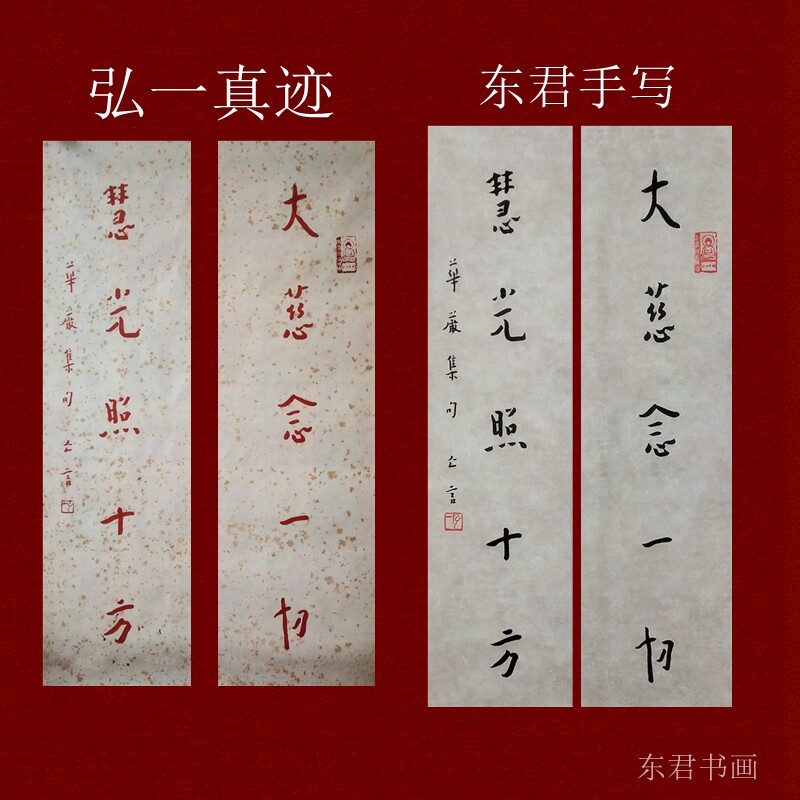 弘一真迹
东君手写
大慈念一切
慧光照十方
華嚴集句
大慈念一切
慧光照十方
華嚴集句
东君书画